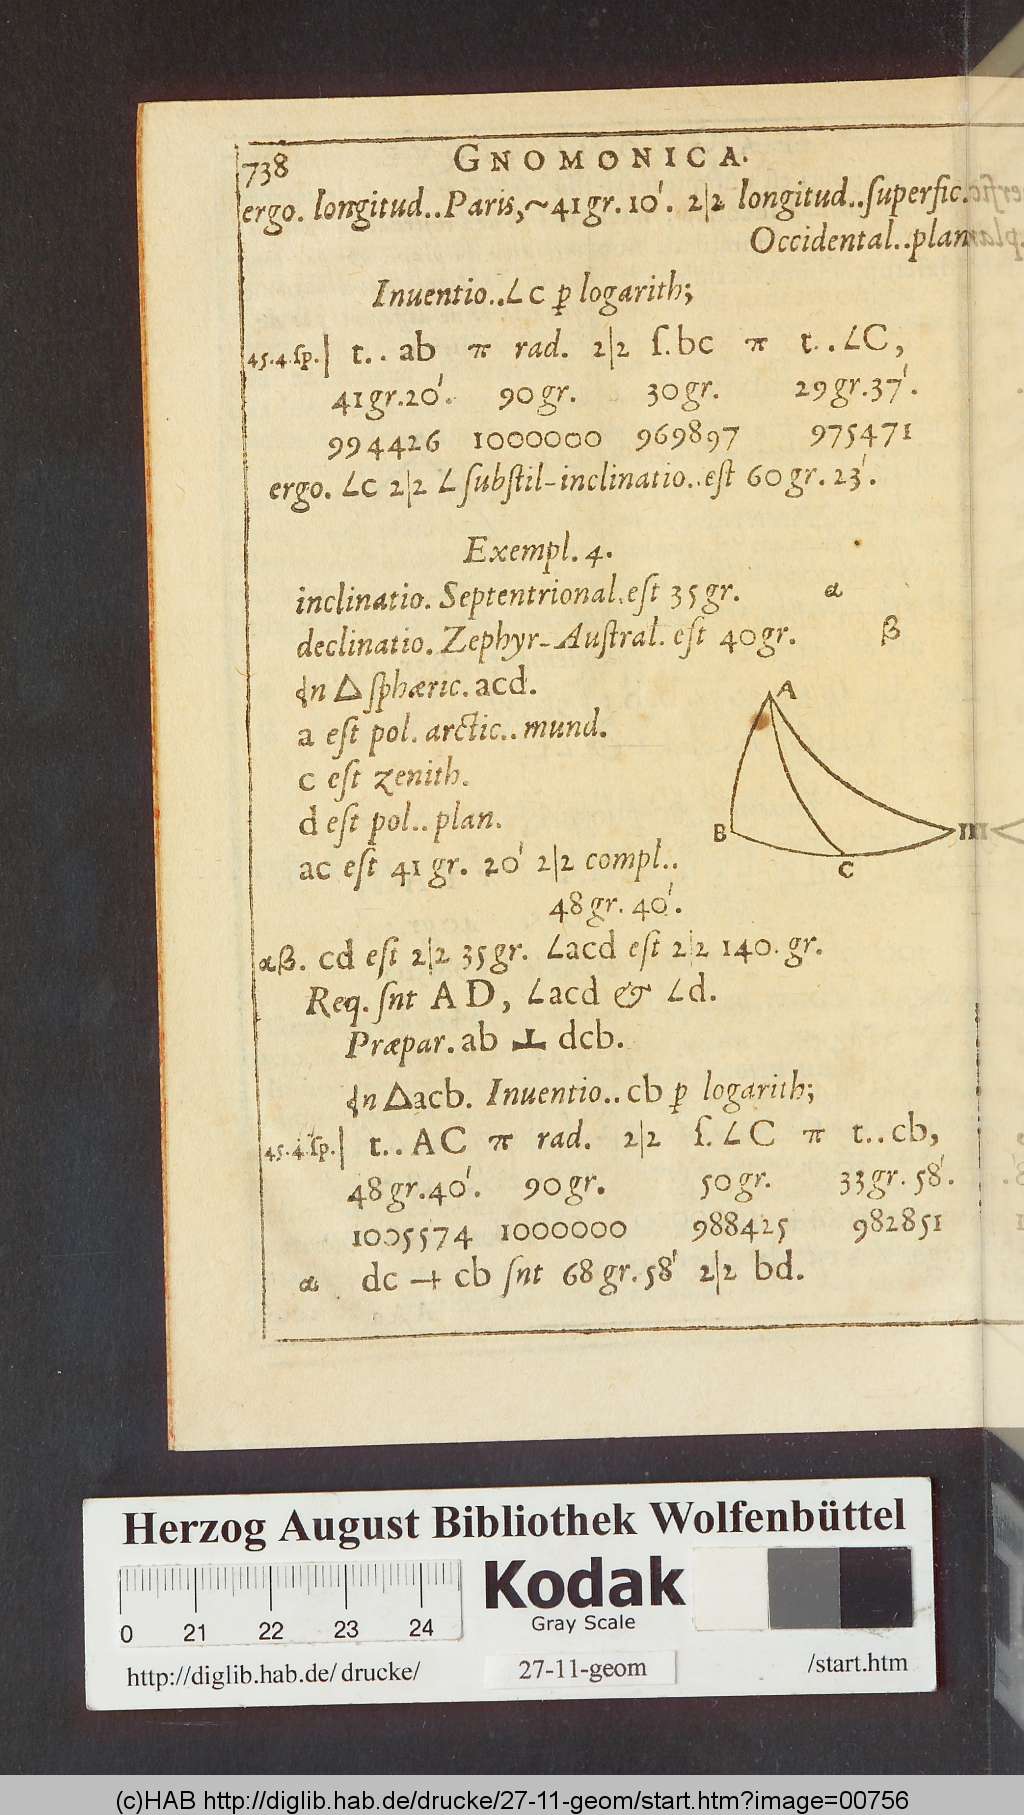 738
GNOMONICA.
ergo. longitud..Paris,~41gr.10'. 2|2 longitud..ſuperfic.
Occidental..plan
Inuentio..∠c p logarith;
45.4.ſp.| t..ab π rad. 2|2 ſ.bc π t..∠C,
41gr.20'. 90gr. 30gr. 29gr.37'.
994426 1000000 969897 975471
ergo. ∠c 2|2 ∠ ſubſtil-inclinatio..eſt 60gr.23'.
Exempl.4.
inclinatio. Septentrional.eſt 35gr. α
declinatio. Zephyr-Auſtral. eſt 40gr. β
In △ ſphæric. acd.
a eſt pol. arctic..mund.
c eſt zenith.
d eſt pol..plan.
ac eſt 41gr. 20' 2|2 compl..
48gr.40'.
αβ. cd eſt 2|2 35gr. ∠acd eſt 2|2 140.gr.
Req. ſnt AD, ∠acd & ∠d.
Præpar. ab ⊥ dcb.
In △acb. Inuentio..cb p logarith;
45.4.ſp.| t..AC π rad. 2|2 ſ.∠C π t..cb,
48gr.40'. 90gr. 50gr. 33gr.58'.
1005574 1000000 988425 982851
α dc + cb ſnt 68gr.58' 2|2 bd.
A
B
C
Herzog August Bibliothek Wolfenbüttel
Kodak
Gray Scale
0 21 22 23 24
http://diglib.hab.de/drucke/ 27-11-geom /start.htm
(c)HAB http://diglib.hab.de/drucke/27-11-geom/start.htm?image=00756